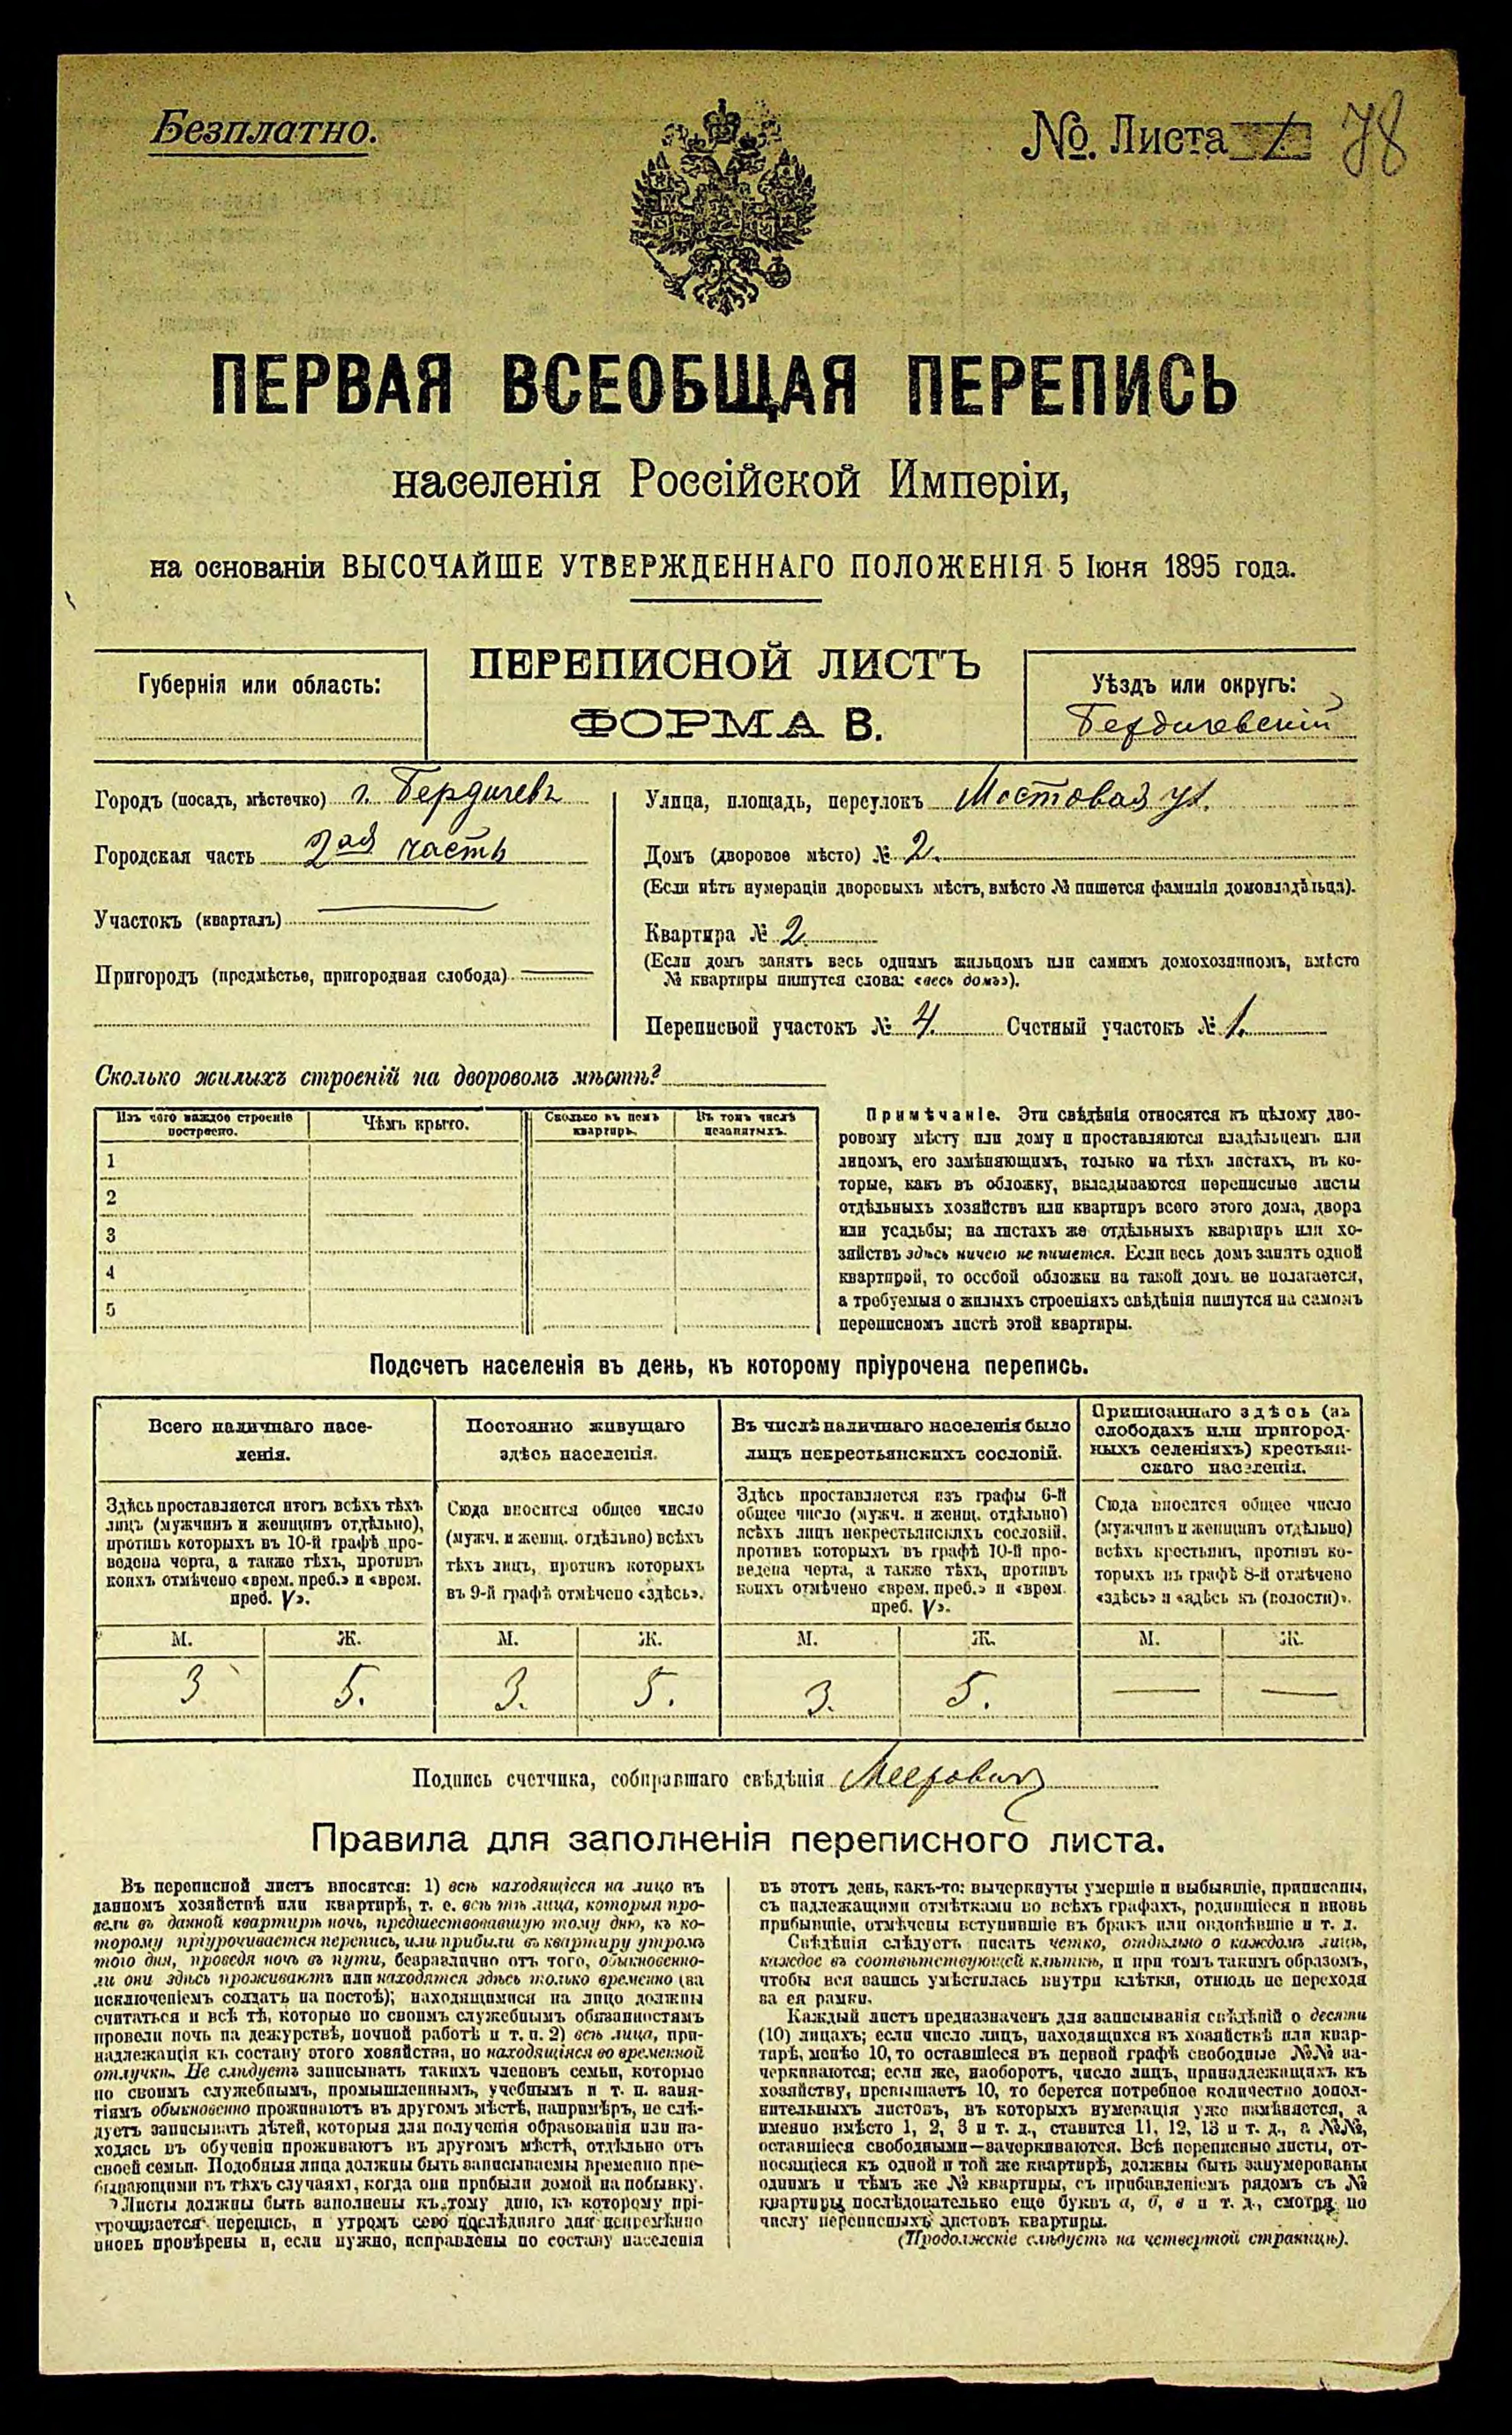 Безплатно.
№. Листа 1. 78
ПЕРВАЯ ВСЕОБЩАЯ ПЕРЕПИСЬ
населенія Россійской Имперіи,
на основаніи ВЫСОЧАЙШЕ УТВЕРЖДЕННАГО ПОЛОЖЕНІЯ 5 Іюня 1895 года.
Губернія или область:
ПЕРЕПИСНОЙ ЛИСТЪ
ФОРМА В.
Уѣздъ или округъ:
Бердичевскій
Городъ (посадъ, мѣстечко) г. Бердичевъ
Городская часть 2ая часть
Участокъ (кварталъ)
Пригородъ (предмѣстье, пригородная слобода)
Улица, площадь, переулокъ Мостовая ул.
Домъ (дворовое мѣсто) № 2.
(Если нѣтъ нумераціи дворовыхъ мѣстъ, вмѣсто № пишется фамилія домовладѣльца).
Квартира № 2.
(Если домъ занятъ весь однимъ жильцомъ или самимъ домохозяиномъ, вмѣсто
№ квартиры пишутся слова: «весь домъ»).
Переписной участокъ № 4. Счетный участокъ № 1.
Сколько жилыхъ строеній на дворовомъ мѣстѣ?
Изъ чего каждое строеніе
построено.
Чѣмъ крыто.
Сколько въ немъ
квартиръ.
Въ томъ числѣ
незанятыхъ.
1
2
3
4
5
Примѣчаніе. Эти свѣдѣнія относятся къ цѣлому дво-
ровому мѣсту или дому и проставляются владѣльцемъ или
лицомъ, его замѣняющимъ, только на тѣхъ листахъ, въ ко-
торые, какъ въ обложку, вкладываются переписные листы
отдѣльныхъ хозяйствъ или квартиръ всего этого дома, двора
или усадьбы; на листахъ же отдѣльныхъ квартиръ или хо-
зяйствъ здѣсь ничего не пишется. Если весь домъ занятъ одной
квартирой, то особой обложки на такой домъ не полагается,
а требуемыя о жилыхъ строеніяхъ свѣдѣнія пишутся на самомъ
переписномъ листѣ этой квартиры.
Подсчетъ населенія въ день, къ которому пріурочена перепись.
Всего наличнаго насе-
ленія.
Постоянно живущаго
здѣсь населенія.
Въ числѣ наличнаго населенія было
лицъ некрестьянскихъ сословій.
Приписаннаго здѣсь (въ
слободахъ или пригород-
ныхъ селеніяхъ) крестьян-
скаго населенія.
Здѣсь проставляется итогъ всѣхъ тѣхъ
лицъ (мужчинъ и женщинъ отдѣльно),
противъ которыхъ въ 10-й графѣ про-
ведена черта, а также тѣхъ, противъ
коихъ отмѣчено «врем. преб.» и «врем.
преб. V».
Сюда вносится общее число
(мужч. и женщ. отдѣльно) всѣхъ
тѣхъ лицъ, противъ которыхъ
въ 9-й графѣ отмѣчено «здѣсь».
Здѣсь проставляется изъ графы 6-й
общее число (мужч. и женщ. отдѣльно)
всѣхъ лицъ некрестьянскихъ сословій,
противъ которыхъ въ графѣ 10-й про-
ведена черта, а также тѣхъ, противъ
коихъ отмѣчено «врем. преб.» и «врем.
преб. V».
Сюда вносится общее число
(мужчинъ и женщинъ отдѣльно)
всѣхъ крестьянъ, противъ ко-
торыхъ въ графѣ 8-й отмѣчено
«здѣсь» и «здѣсь къ (волости)».
М. Ж. М. Ж. М. Ж. М. Ж.
3 5. 3. 5. 3. 5.
Подпись счетчика, собиравшаго свѣдѣнія Меерович
Правила для заполненія переписного листа.
Въ переписной листъ вносятся: 1) всѣ находящіеся на лицо въ
данномъ хозяйствѣ или квартирѣ, т. е. всѣ тѣ лица, которыя про-
вели въ данной квартирѣ ночь, предшествовавшую тому дню, къ ко-
торому пріурочивается перепись, или прибыли въ квартиру утромъ
того дня, проведя ночь въ пути, безразлично отъ того, обыкновенно-
ли они здѣсь проживаютъ или находятся здѣсь только временно (за
исключеніемъ солдатъ на постоѣ); находящимися на лицо должны
считаться и всѣ тѣ, которые по своимъ служебнымъ обязанностямъ
провели ночь на дежурствѣ, ночной работѣ и т. п. 2) всѣ лица, при-
надлежащія къ составу этого хозяйства, но находящіяся во временной
отлучкѣ. Не слѣдуетъ записывать такихъ членовъ семьи, которые
по своимъ служебнымъ, промышленнымъ, учебнымъ и т. п. заня-
тіямъ обыкновенно проживаютъ въ другомъ мѣстѣ, напримѣръ, не слѣ-
дуетъ записывать дѣтей, которыя для полученія образованія или на-
ходясь въ обученіи проживаютъ въ другомъ мѣстѣ, отдѣльно отъ
своей семьи. Подобныя лица должны быть записываемы временно пре-
бывающими въ тѣхъ случаяхъ, когда они прибыли домой на побывку.
Листы должны быть заполнены къ тому дню, къ которому прі-
урочивается перепись, и утромъ сего послѣдняго дня непремѣнно
вновь провѣрены и, если нужно, исправлены по составу населенія
въ этотъ день, какъ-то: вычеркнуты умершіе и выбывшіе, приписаны,
съ надлежащими отмѣтками во всѣхъ графахъ, родившіеся и вновь
прибывшіе, отмѣчены вступившіе въ бракъ или овдовѣвшіе и т. д.
Свѣдѣнія слѣдуетъ писать четко, отдѣльно о каждомъ лицѣ,
каждое въ соотвѣтствующей клѣткѣ, и при томъ такимъ образомъ,
чтобы вся запись умѣстилась внутри клѣтки, отнюдь не переходя
за ея рамки.
Каждый листъ предназначенъ для записыванія свѣдѣній о десяти
(10) лицахъ; если число лицъ, находящихся въ хозяйствѣ или квар-
тирѣ, менѣе 10, то оставшіеся въ первой графѣ свободные №№ за-
черкиваются; если же, наоборотъ, число лицъ, принадлежащихъ къ
хозяйству, превышаетъ 10, то берется потребное количество допол-
нительныхъ листовъ, въ которыхъ нумерація уже измѣняется, а
именно вмѣсто 1, 2, 3 и т. д., ставится 11, 12, 13 и т. д., а №№,
оставшіеся свободными—зачеркиваются. Всѣ переписные листы, от-
носящіеся къ одной и той же квартирѣ, должны быть занумерованы
однимъ и тѣмъ же № квартиры, съ прибавленіемъ рядомъ съ №
квартиры послѣдовательно еще буквъ а, б, в и т. д., смотря по
числу переписныхъ листовъ квартиры.
(Продолженіе слѣдуетъ на четвертой страницѣ).